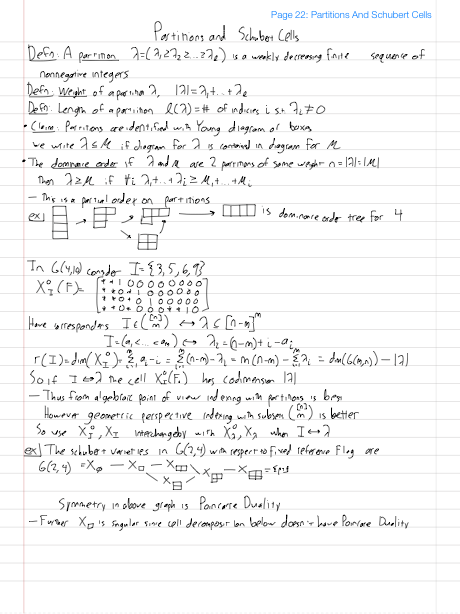 Page 22: Partitions And Schubert Cells
Partitions and Schubert Cells
Defn: A partition λ=(λ₁≥λ₂≥...≥λₗ) is a weakly decreasing finite sequence of
nonnegative integers
Defn: Weight of a partition λ, |λ|=λ₁+...+λₗ
Defn: Length of a partition ℓ(λ)=# of indicies i s.t. λᵢ≠0
• Claim: Partitions are identified with Young diagram of boxes
we write λ≤M if diagram for λ is contained in diagram for M
• The dominance order if λ and M are 2 partitions of same weight n=|λ|=|M|
then λ≥M if ∀i λ₁+...+λᵢ≥M₁+...+Mᵢ
– This is a partial order on partitions
ex] is dominance order tree for 4
In G(4,10) consider I={3,5,6,9}
X_I^o(F)= [* * 1 0 0 0 0 0 0 0
* * 0 * 1 0 0 0 0 0
* * 0 * 0 1 0 0 0 0
* * 0 * 0 0 * * 1 0]
Have correspondence I∈([n] m) ↔ λ≤[n-m]^m
I=(a₁<...<aₘ) ↔ λᵢ=(n-m)+i-aᵢ
r(I)=dim(X_I^o)=Σ aᵢ-i = Σ(n-m)-λᵢ = m(n-m)-Σλᵢ = dim(G(m,n))-|λ|
So if I↔λ the cell X_I^o(F.) has codimension |λ|
– Thus from algebraic point of view indexing with partitions is best
However geometric perspective indexing with subsets ([n] m) is better
So use X_I^o, X_I interchangebly with X_λ^o, X_λ when I↔λ
ex] The schubert varieties in G(2,4) with respect to fixed reference Flag are
G(2,4) = X_∅ – X_□ – X – X – X = {pt}
X
Symmetry in above graph is Poincare Duality
– Further X_□ is singular since cell decomposition below doesn't have Poincare Duality